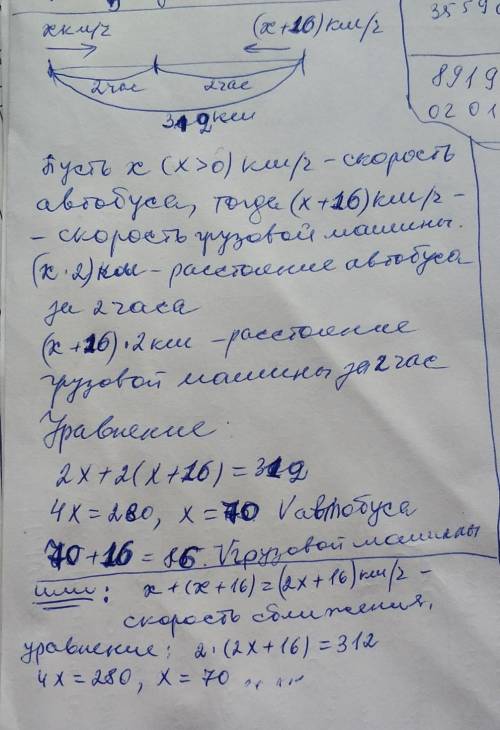 х км/ч (х+16) км/ч
2 час 2 час
312 км
3559
8919
02 01
Пусть х (х>0) км/ч - скорость
автобуса, тогда (х+16) км/ч -
- скорость грузовой машины.
(х·2) км - расстояние автобуса
за 2 часа
(х+16)·2 км - расстояние
грузовой машины за 2 час
Уравнение
2х+2(х+16)=312
4х=280, х=70 V автобуса
70+16=86. V грузовой машины
или: х+(х+16)=(2х+16) км/ч -
скорость сближения.
уравнение: 2·(2х+16)=312
4х=280, х=70 .....